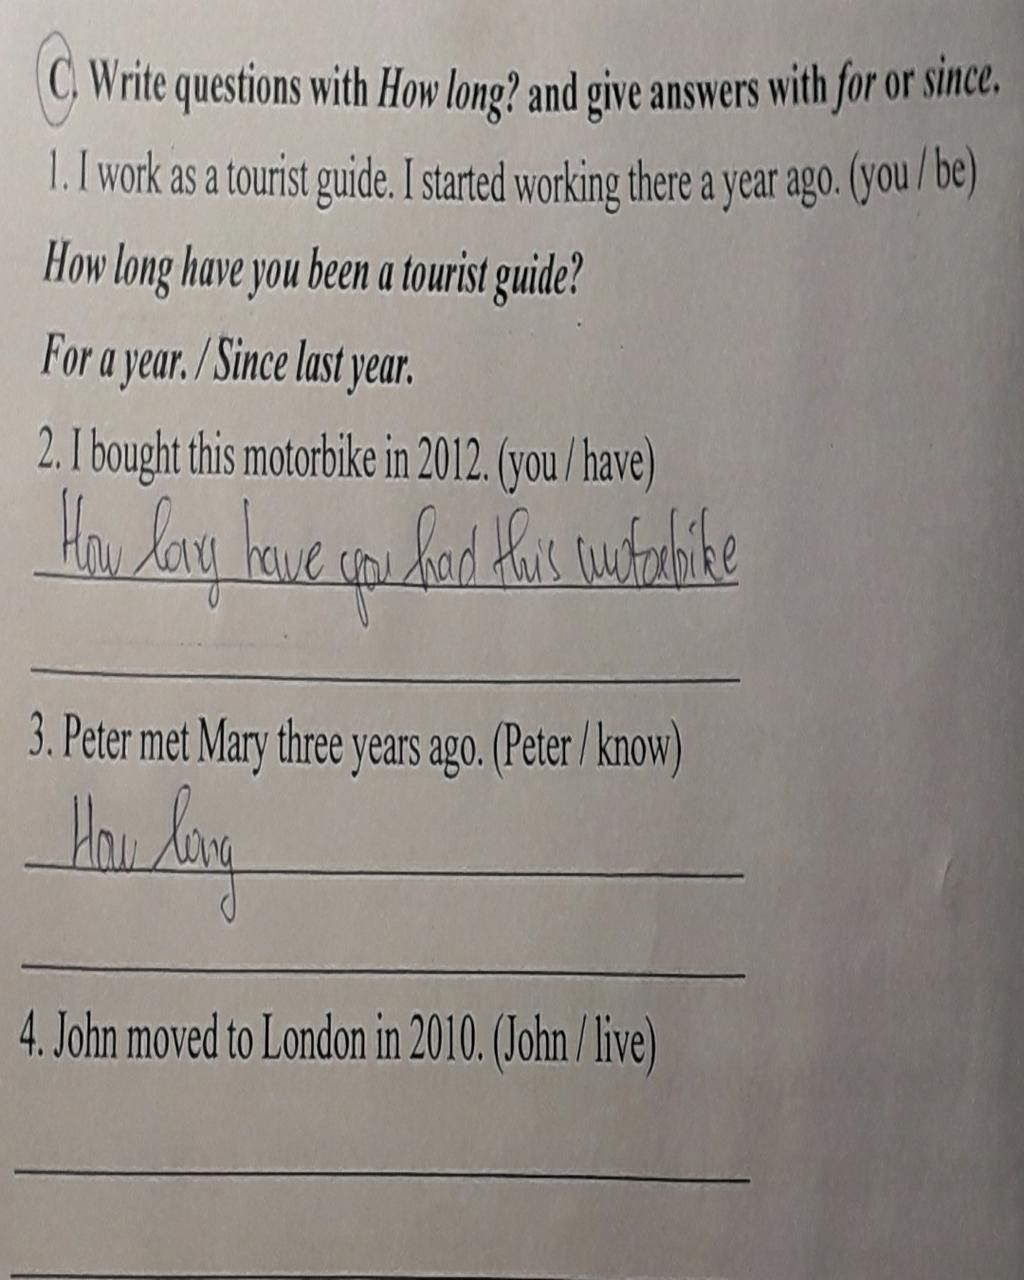 C. Write questions with How long? and give answers with for or since.
1. I work as a tourist guide. I started working there a year ago. (you / be)
How long have you been a tourist guide?
For a year. / Since last year.
2. I bought this motorbike in 2012. (you / have)
How long have you had this motorbike
3. Peter met Mary three years ago. (Peter / know)
How long
4. John moved to London in 2010. (John / live)